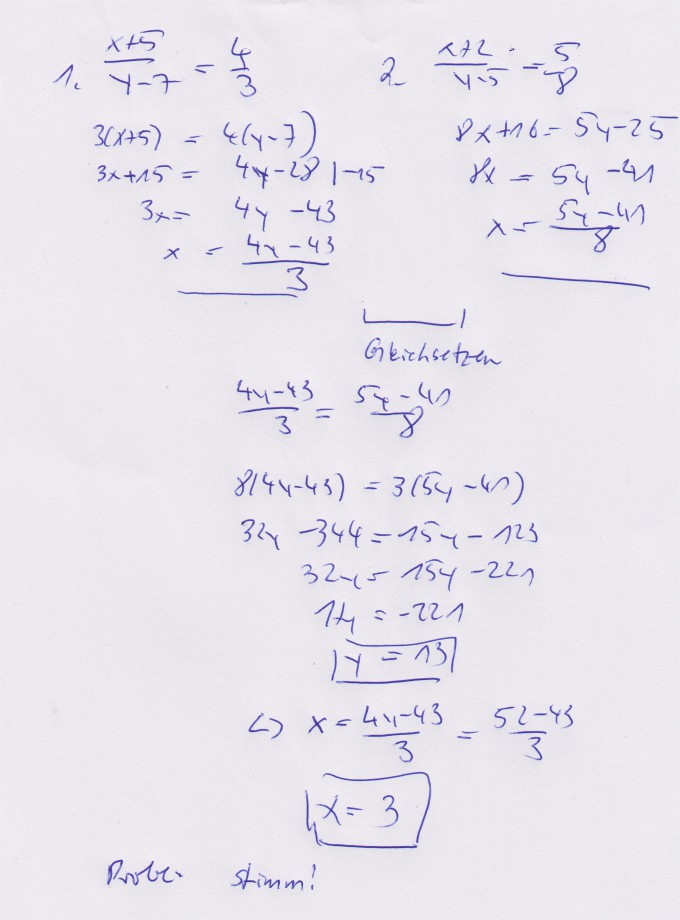 1. (x+5)/(y-7) = 4/3
2. (x+2)/(y-5) = 5/8
3(x+5) = 4(y-7)
8x+16 = 5y-25
3x+15 = 4y-28 |-15
8x = 5y -41
3x = 4y -43
x = (5y-41)/8
x = (4y-43)/3
Gleichsetzen
(4y-43)/3 = (5y-41)/8
8(4y-43) = 3(5y-41)
32y -344 = 15y - 123
32y = 15y -221
17y = -221
y = 13
<-> x = (4y-43)/3 = (52-43)/3
x = 3
Probe stimm!